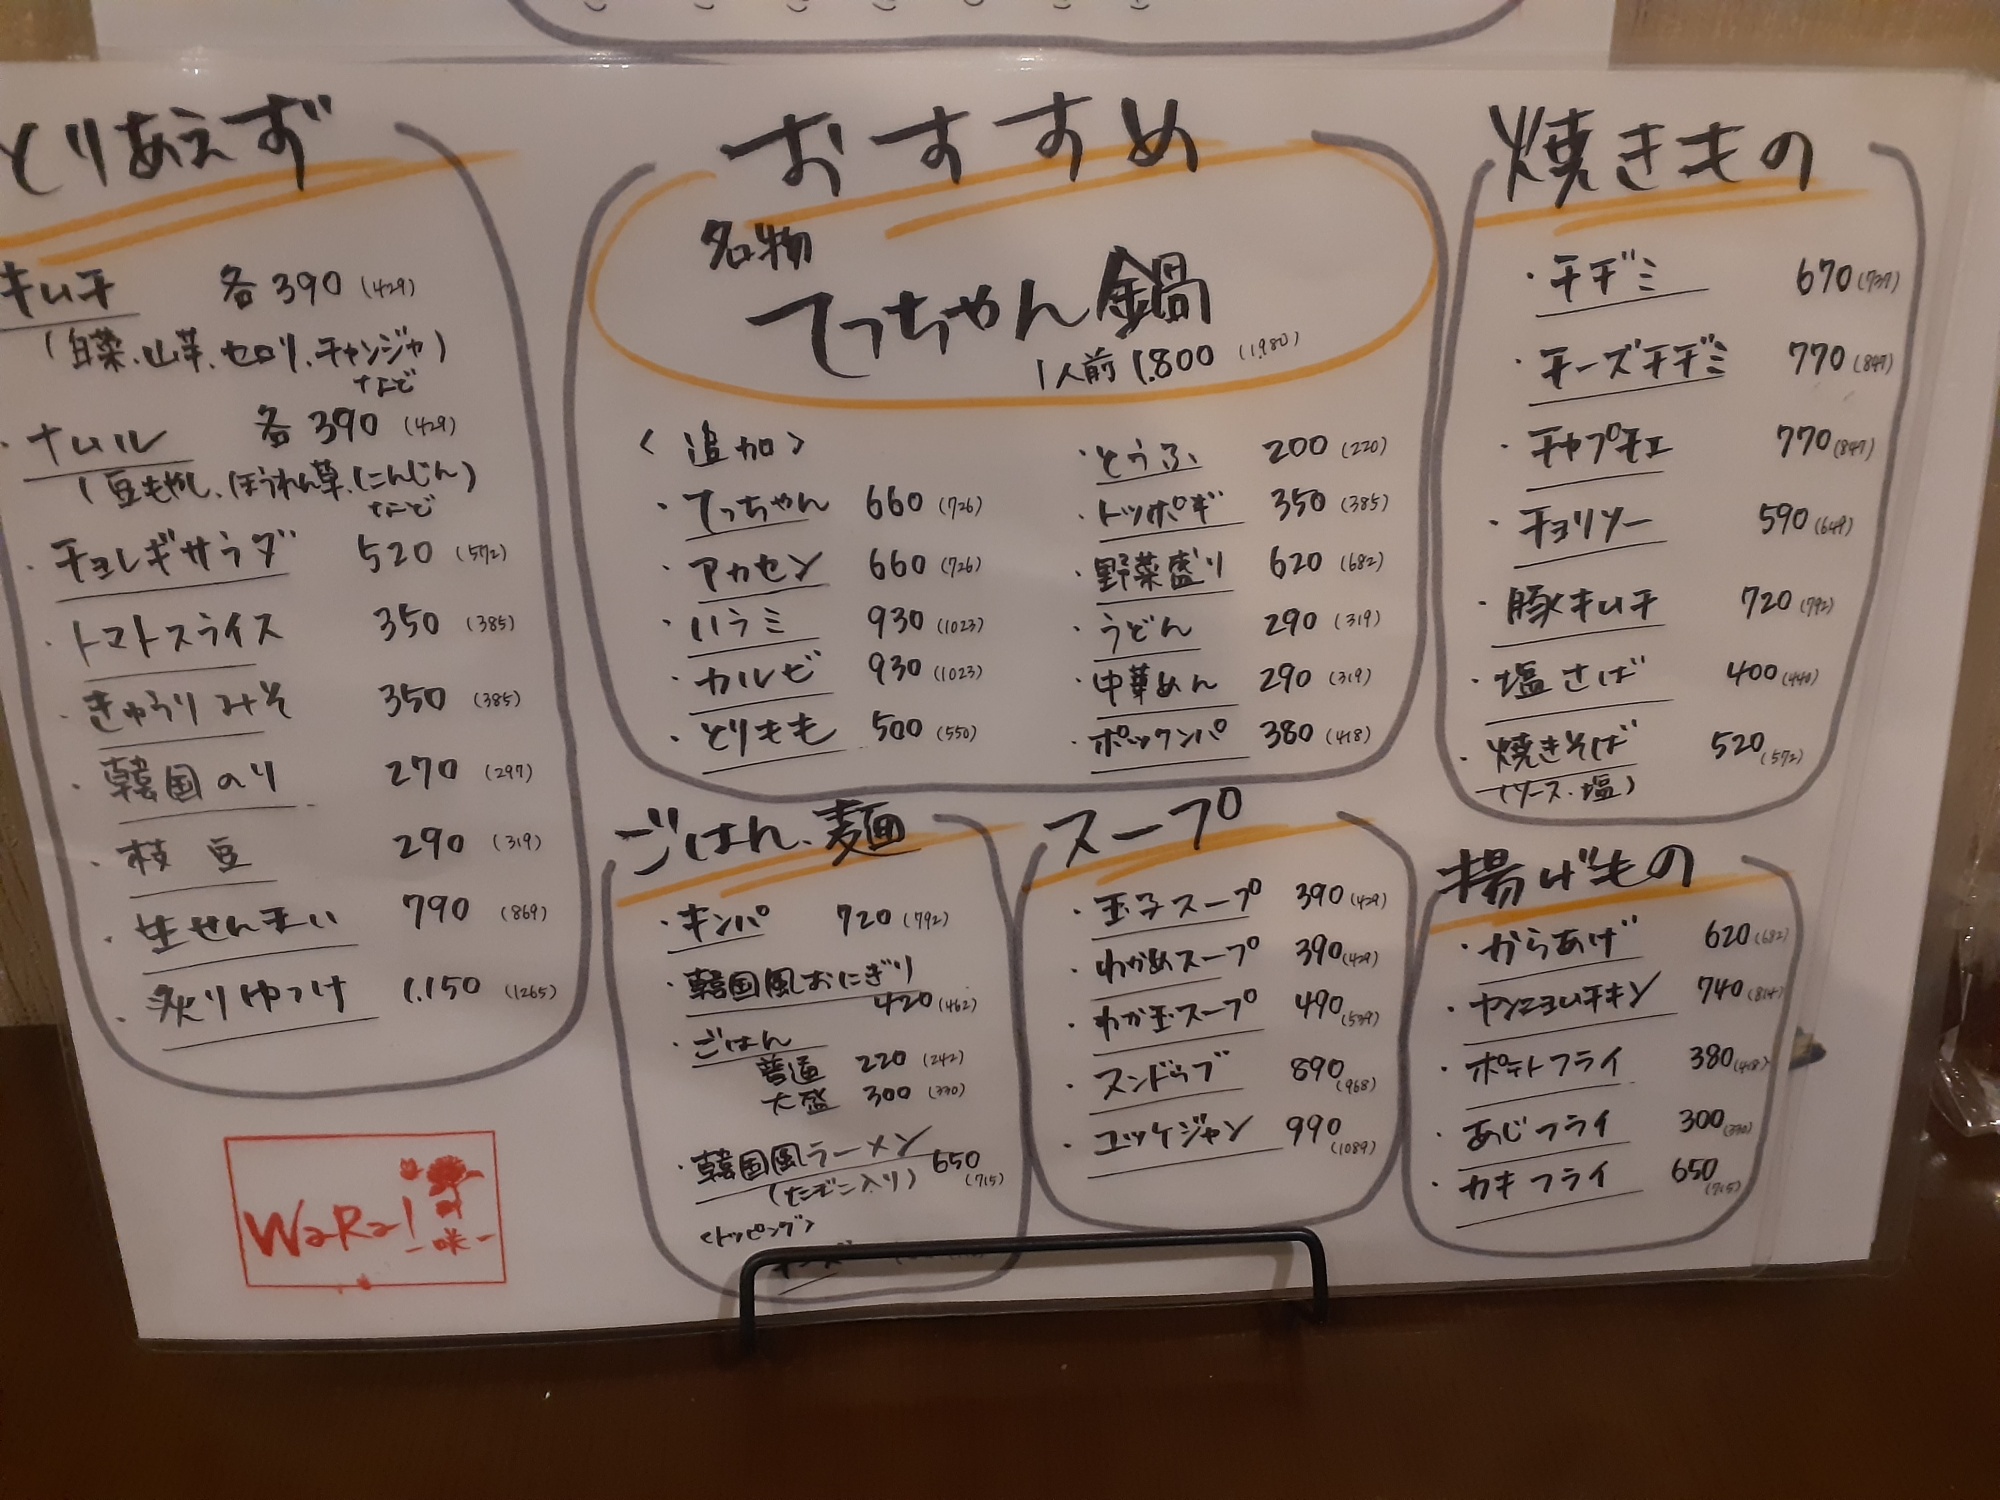 とりあえず
キムチ 各390 (429)
(白菜、山芋、セロリ、チャンジャ)
など
・ナムル 各390 (429)
(豆もやし、ほうれん草、にんじん)
など
・チョレギサラダ 520 (572)
・トマトスライス 350 (385)
・きゅうりみそ 350 (385)
・韓国のり 270 (297)
・枝豆 290 (319)
・生せんまい 790 (869)
・炙りゆっけ 1.150 (1265)
WaRa!
-咲-
おすすめ
名物
てっちゃん鍋
1人前 1.800 (1.980)
<追加>
・てっちゃん 660 (726)
・アカセン 660 (726)
・ハラミ 930 (1023)
・カルビ 930 (1023)
・とりもも 500 (550)
・とうふ 200 (220)
・トッポギ 350 (385)
・野菜盛り 620 (682)
・うどん 290 (319)
・中華めん 290 (319)
・ポックンパ 380 (418)
ごはん、麺
・キンパ 720 (792)
・韓国風おにぎり
420 (462)
・ごはん
普通 220 (242)
大盛 300 (330)
・韓国風ラーメン 650
(たまご入り) (715)
<トッピング>
スープ
・玉子スープ 390 (429)
・わかめスープ 390 (429)
・わか玉スープ 490 (539)
・スンドゥブ 890 (968)
・ユッケジャン 990 (1089)
焼きもの
・チヂミ 670 (737)
・チーズチヂミ 770 (847)
・チャプチェ 770 (847)
・チョリソー 590 (649)
・豚キムチ 720 (792)
・塩さば 400 (440)
・焼きそば 520 (572)
(ソース、塩)
揚げもの
・からあげ 620 (682)
・ヤンニョムチキン 740 (814)
・ポテトフライ 380 (418)
・あじフライ 300 (330)
・カキフライ 650 (715)